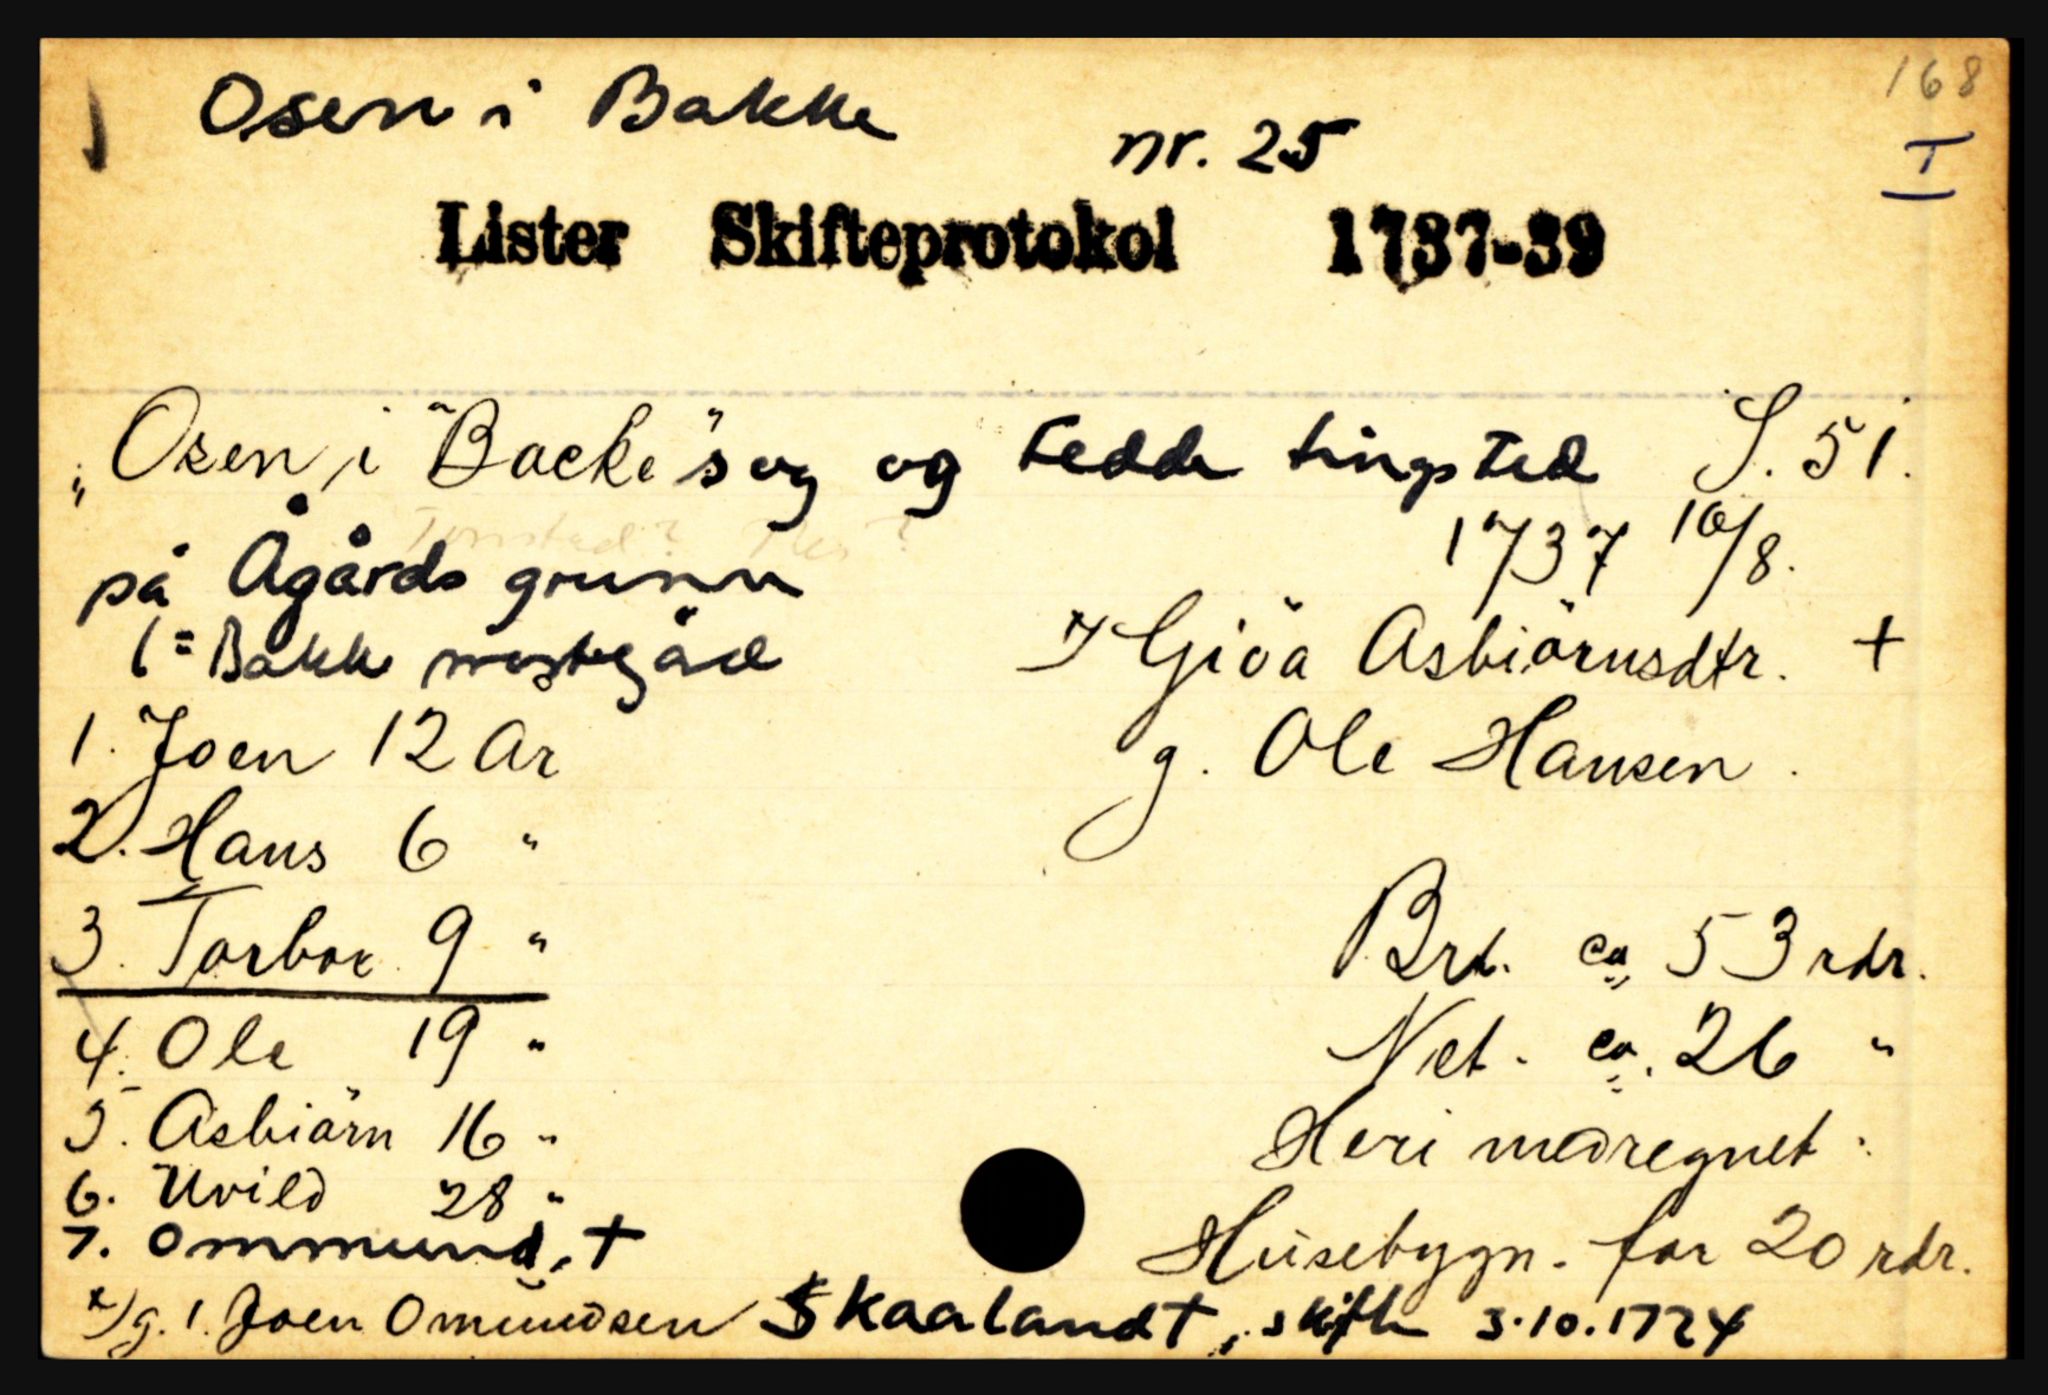 168
Osen i Bakke
nr. 25
I
Lister Skifteprotokol 1737-39
"Osen i "Backe" sog og Fedde tingsted S. 51.
1737 16/8.
på Ågårds grunn
(= Bakke prestegård
x) Giöa Asbiörnsdtr. +
g. Ole Hansen.
1. Joen 12 år
2. Hans 6 "
3. Torbor 9 "
4. Ole 19 "
5. Asbiörn 16 "
6. Uvild 28 "
7. Ommund, +
Brt. ca. 53 rdr.
Net. ca. 26 "
Heri medregnet:
Husebygn. for 20 rdr.
x) g. 1. Joen Omundsen Skaalandt, skifte 3.10.1724